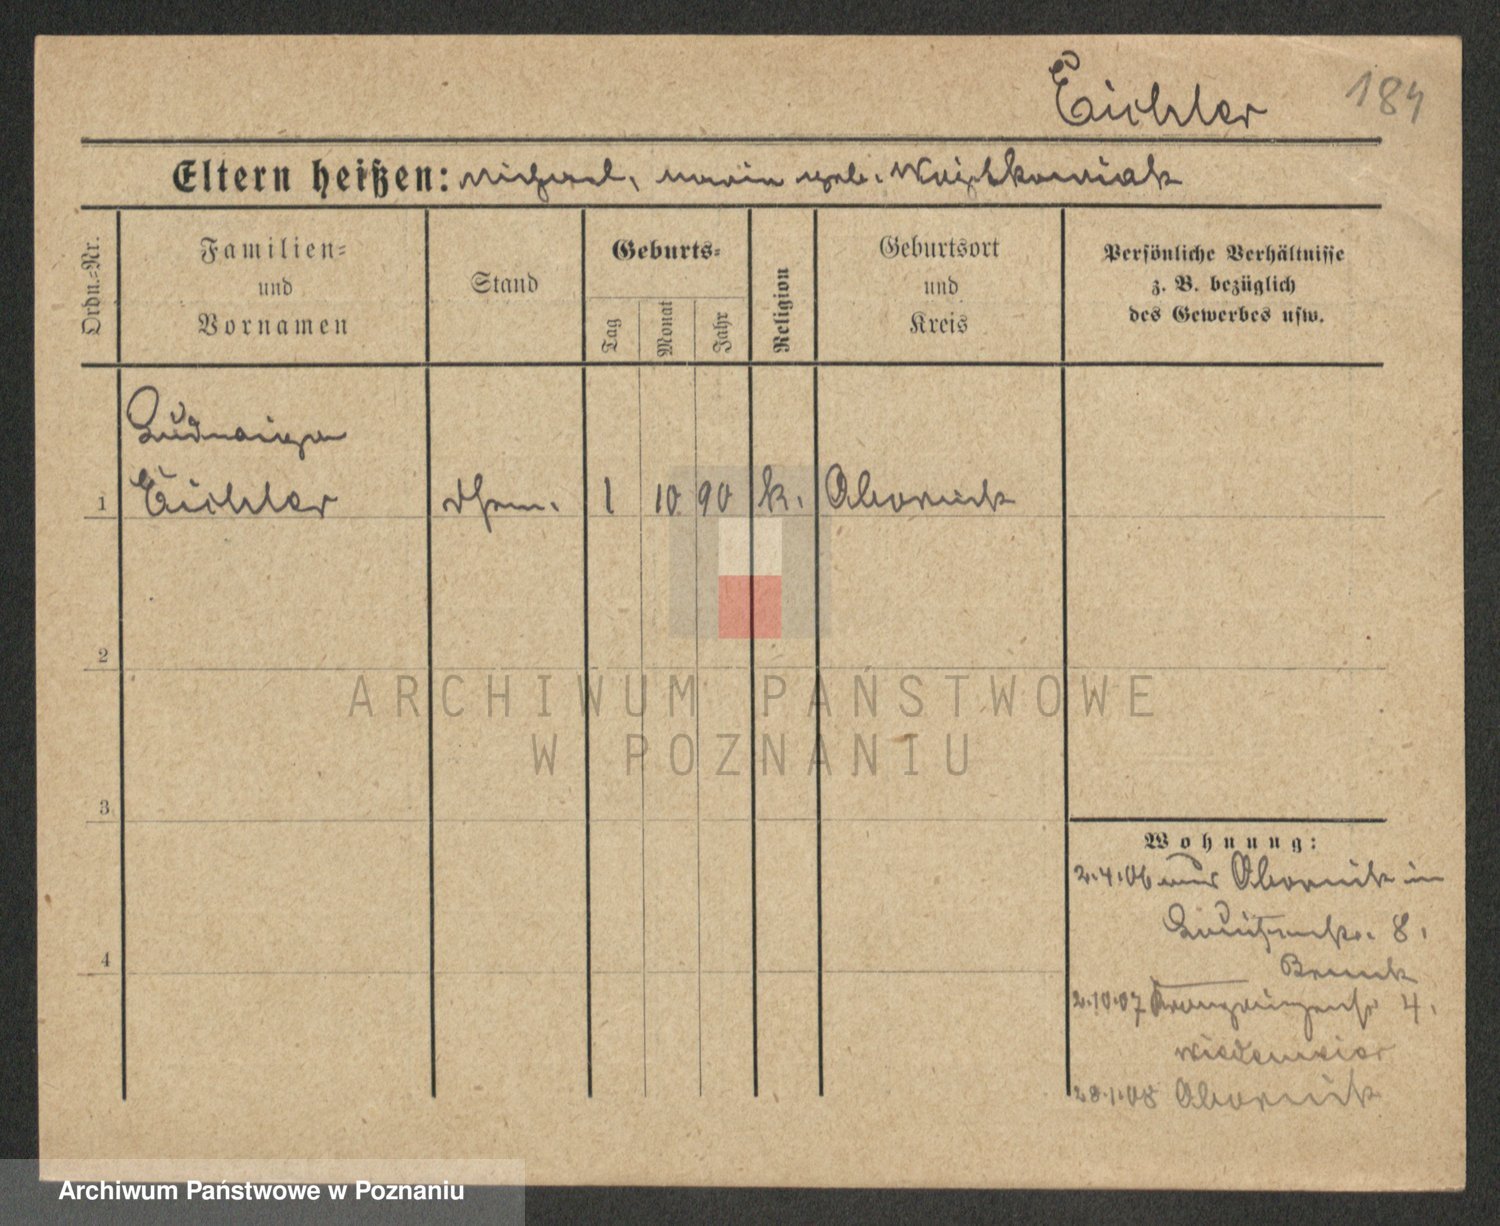 Eichler
184
Eltern heißen: Michael, Maria geb. Woytkowiak
Ordn.=Nr.
Familien=
und
Vornamen
Stand
Geburts=
Tag
Monat
Jahr
Religion
Geburtsort
und
Kreis
Persönliche Verhältnisse
z. B. bezüglich
des Gewerbes usw.
Ludwiga
1 Eichler 1 10 90 k. Obornik
2
ARCHIWUM PAŃSTWOWE
W POZNANIU
3
Wohnung:
2.4.06 aus Obornik in
8.
4
2.10.07 Kronprinzenstr 4.
28.1.08 Obornik
Archiwum Państwowe w Poznaniu